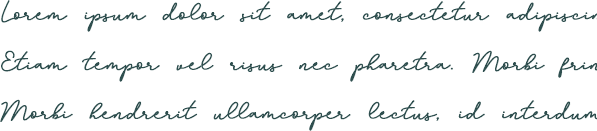 Lorem ipsum dolor sit amet, consectetur adipiscin
Etiam tempor vel risus nec pharetra. Morbi frin
Morbi hendrerit ullamcorper lectus, id interdum